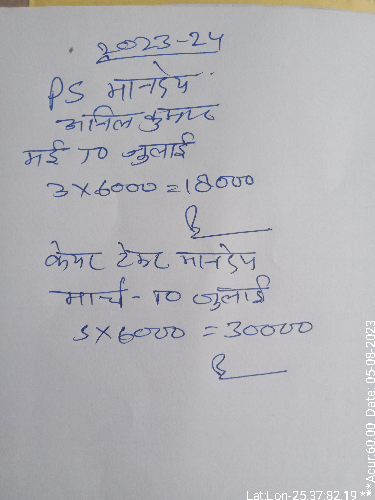 2023-24
PS मानदेय
अनिल कुमार
मई TO जुलाई
3×6000=18000
केयर टेकर मानदेय
मार्च - TO जुलाई
5×6000 = 30000
Lat Lon-25.37:82.19 ***Acur:60.00, Date: 05-08-2023